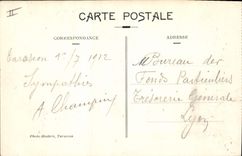 II
CARTE POSTALE
CORRESPONDANCE
ADRESSE
Tarascon 1º/7 1912
Sympathie
A. Champin
Bureau des
Fonds Particuliers
Trésorerie Générale
Lyon